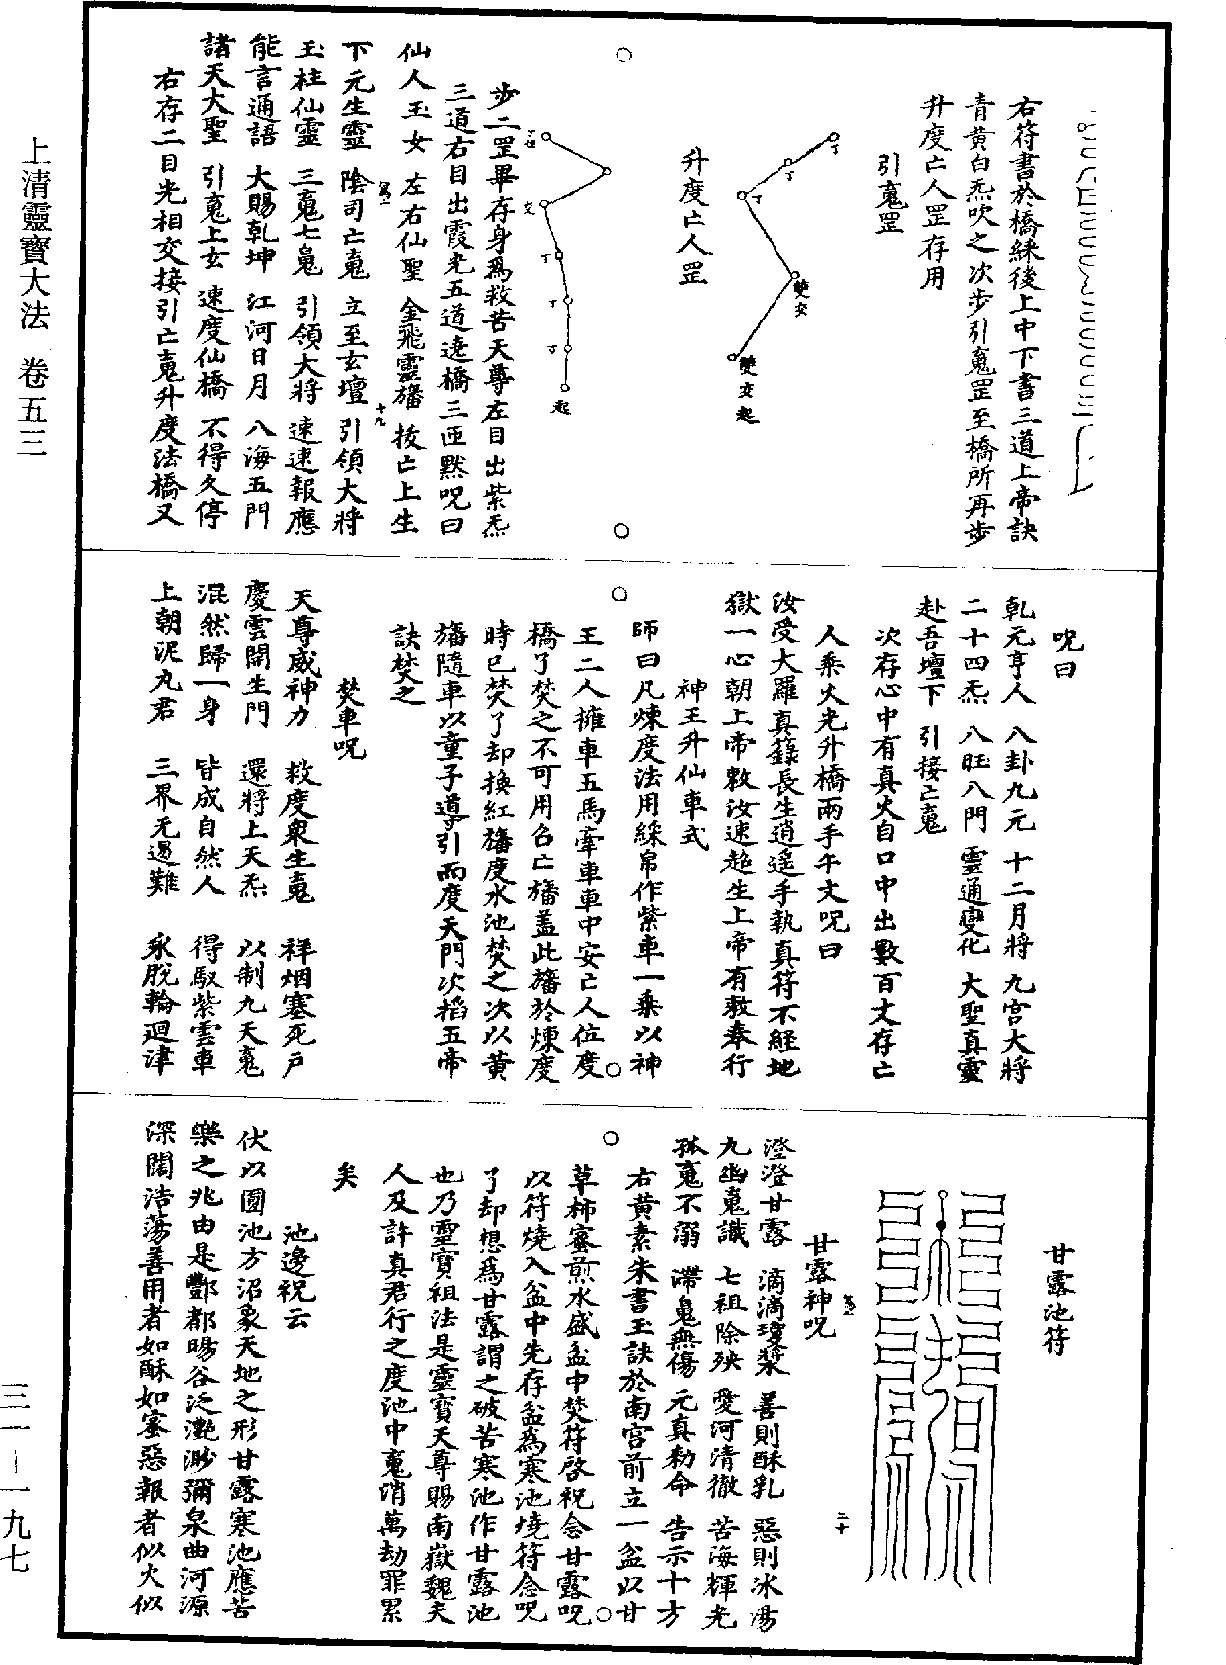 右符書於橋綵後上中下書三道上帝訣
青黃白炁吹之次步引䰟罡至橋所再步
升度亡人罡存用
引䰟罡
丁
丁
丁
雙交
雙交起
升度亡人罡
交
丁
丁
丁
起
步二罡畢存身爲救苦天尊左目出紫炁
三道右目出霞光五道遶橋三匝黙呪曰
仙人玉女 左右仙聖 金飛靈旛 拔亡上生
下元生靈 陰司亡䰟 立至玄壇 引領大將
玉柱仙靈 三䰟七魄 引領大將 速速報應
能言通語 大賜乾坤 江河日月 八海五門
諸天大聖 引䰟上玄 速度仙橋 不得久停
右存二目光相交接引亡䰟升度法橋又
十九
呪曰
乹元亨人 八卦九元 十二月將 九宮大將
二十四炁 八旺八門 靈通變化 大聖真靈
赴吾壇下 引接亡䰟
次存心中有真火自口中出數百丈存亡
人乘火光升橋兩手午文呪曰
汝受大羅真籙長生逍遙手執真符不經地
獄一心朝上帝敕汝速超生上帝有敕奉行
神王升仙車式
師曰凡煉度法用綵帛作紫車一乘以神
王二人擁車五馬牽車車中安亡人位度
橋了焚之不可用召亡旛蓋此旛於煉度
時已焚了却換紅旛度水池焚之次以黃
旛隨車以童子導引而度天門次掐五帝
訣焚之
焚車呪
天尊威神力 救度衆生䰟 祥烟塞死戶
慶雲開生門 還將上天炁 以制九天䰟
混然歸一身 皆成自然人 得馭紫雲車
上朝泥丸君 三界无遏難 永脫輪迴津
甘露池符
甘露神呪
二十
澄澄甘露 滴滴瓊漿 善則酥乳 惡則冰湯
九幽䰟識 七祖除殃 愛河清徹 苦海輝光
孤䰟不溺 滯魄無傷 元真勑命 告示十方
右黃素朱書玉訣於南宮前立一盆以甘
草柿蜜煎水盛盆中焚符啓祝念甘露呪
以符燒入盆中先存盆為寒池燒符念呪
了却想爲甘露謂之破苦寒池作甘露池
也乃靈寶祖法是靈寶天尊賜南嶽魏夫
人及許真君行之度池中䰟消萬劫罪累
矣
池邊祝云
伏以圓池方沼象天地之形甘露寒池應苦
樂之兆由是酆都暘谷泛灔渺彌泉曲河源
深闊浩蕩善用者如酥如蜜惡報者似火似
上清靈寶大法 卷五三
三一－一九七